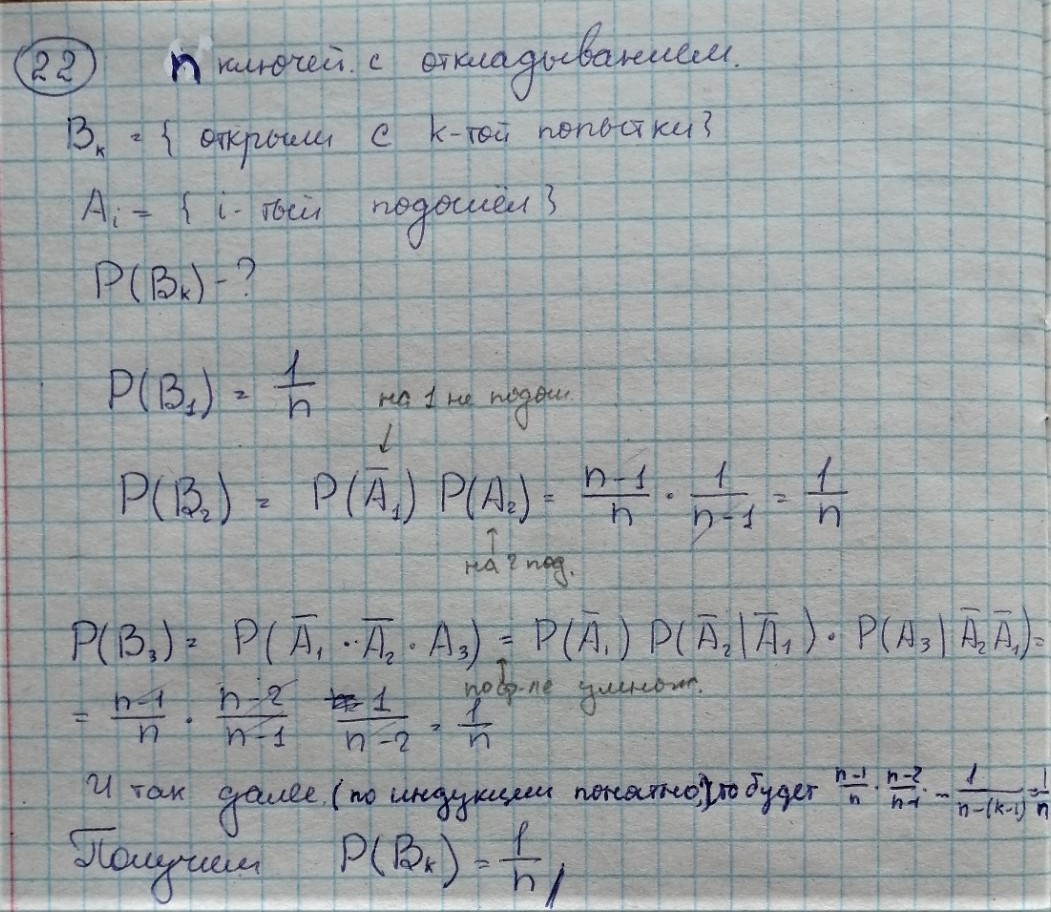 22 n ключей. с откладыванием.
Bₖ = { открыли с k-той попытки}
Aᵢ = { i-тый подошёл}
P(Bₖ) - ?
P(B₁) = 1/n на 1 не подош.
↓
P(B₂) = P(A̅₁) P(A₂) = (n-1)/n · 1/(n-1) = 1/n
↑
на 2 под.
P(B₃) = P(A̅₁ · A̅₂ · A₃) = P(A̅₁) P(A̅₂|A̅₁) · P(A₃|A̅₂A̅₁) =
↑ по ф-ле умнож.
= (n-1)/n · (n-2)/(n-1) 1/(n-2) = 1/n
И так далее (по индукции понятно), то будет (n-1)/n · (n-2)/(n-1) · - 1/(n-(k-1)) = 1/n
Получим P(Bₖ) = 1/n